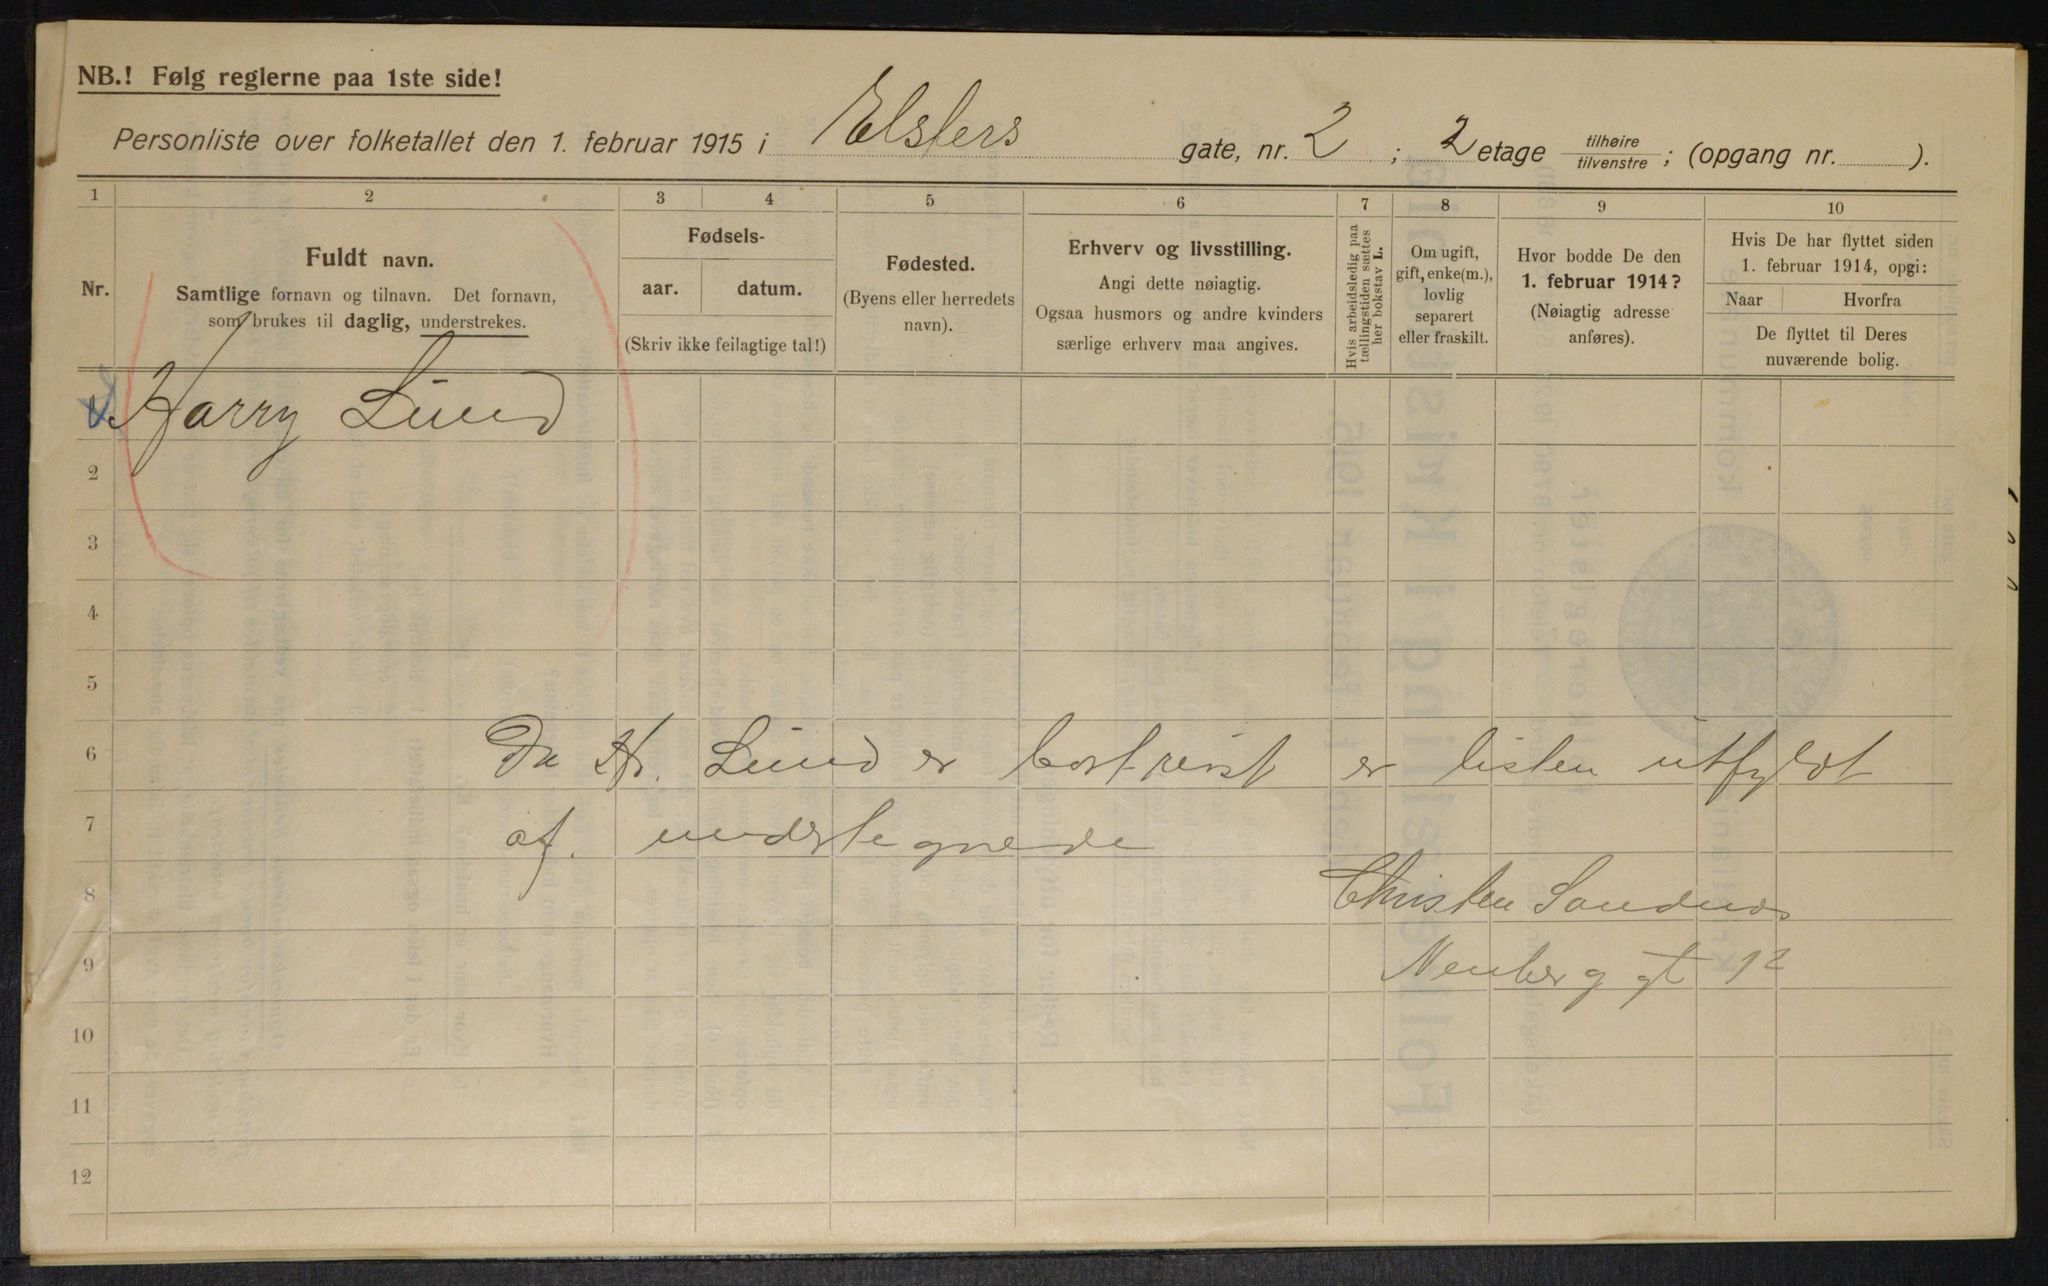 NB.! Følg reglerne paa 1ste side!
Personliste over folketallet den 1. februar 1915 i Elsters gate, nr. 2 ; 2 etage tilhøire / tilvenstre ; (opgang nr. ).
1 2 3 4 5 6 7 8 9 10
Nr.
Fuldt navn.
Samtlige fornavn og tilnavn. Det fornavn,
som brukes til daglig, understrekes.
Fødsels-
aar. datum.
(Skriv ikke feilagtige tal!)
Fødested.
(Byens eller herredets
navn).
Erhverv og livsstilling.
Angi dette nøiagtig.
Ogsaa husmors og andre kvinders
særlige erhverv maa angives.
Hvis arbeidsledig paa
tællingstiden sættes
her bokstav L.
Om ugift,
gift, enke(m.),
lovlig
separert
eller fraskilt.
Hvor bodde De den
1. februar 1914?
(Nøiagtig adresse
anføres).
Hvis De har flyttet siden
1. februar 1914, opgi:
Naar Hvorfra
De flyttet til Deres
nuværende bolig.
Harry Lund
2
3
4
5
6 Da Hr. Lund er bortreist er listen utfyldt
7 af. undertegnede
8 Christen Sandnes
9 Neuberg gt 12
10
11
12